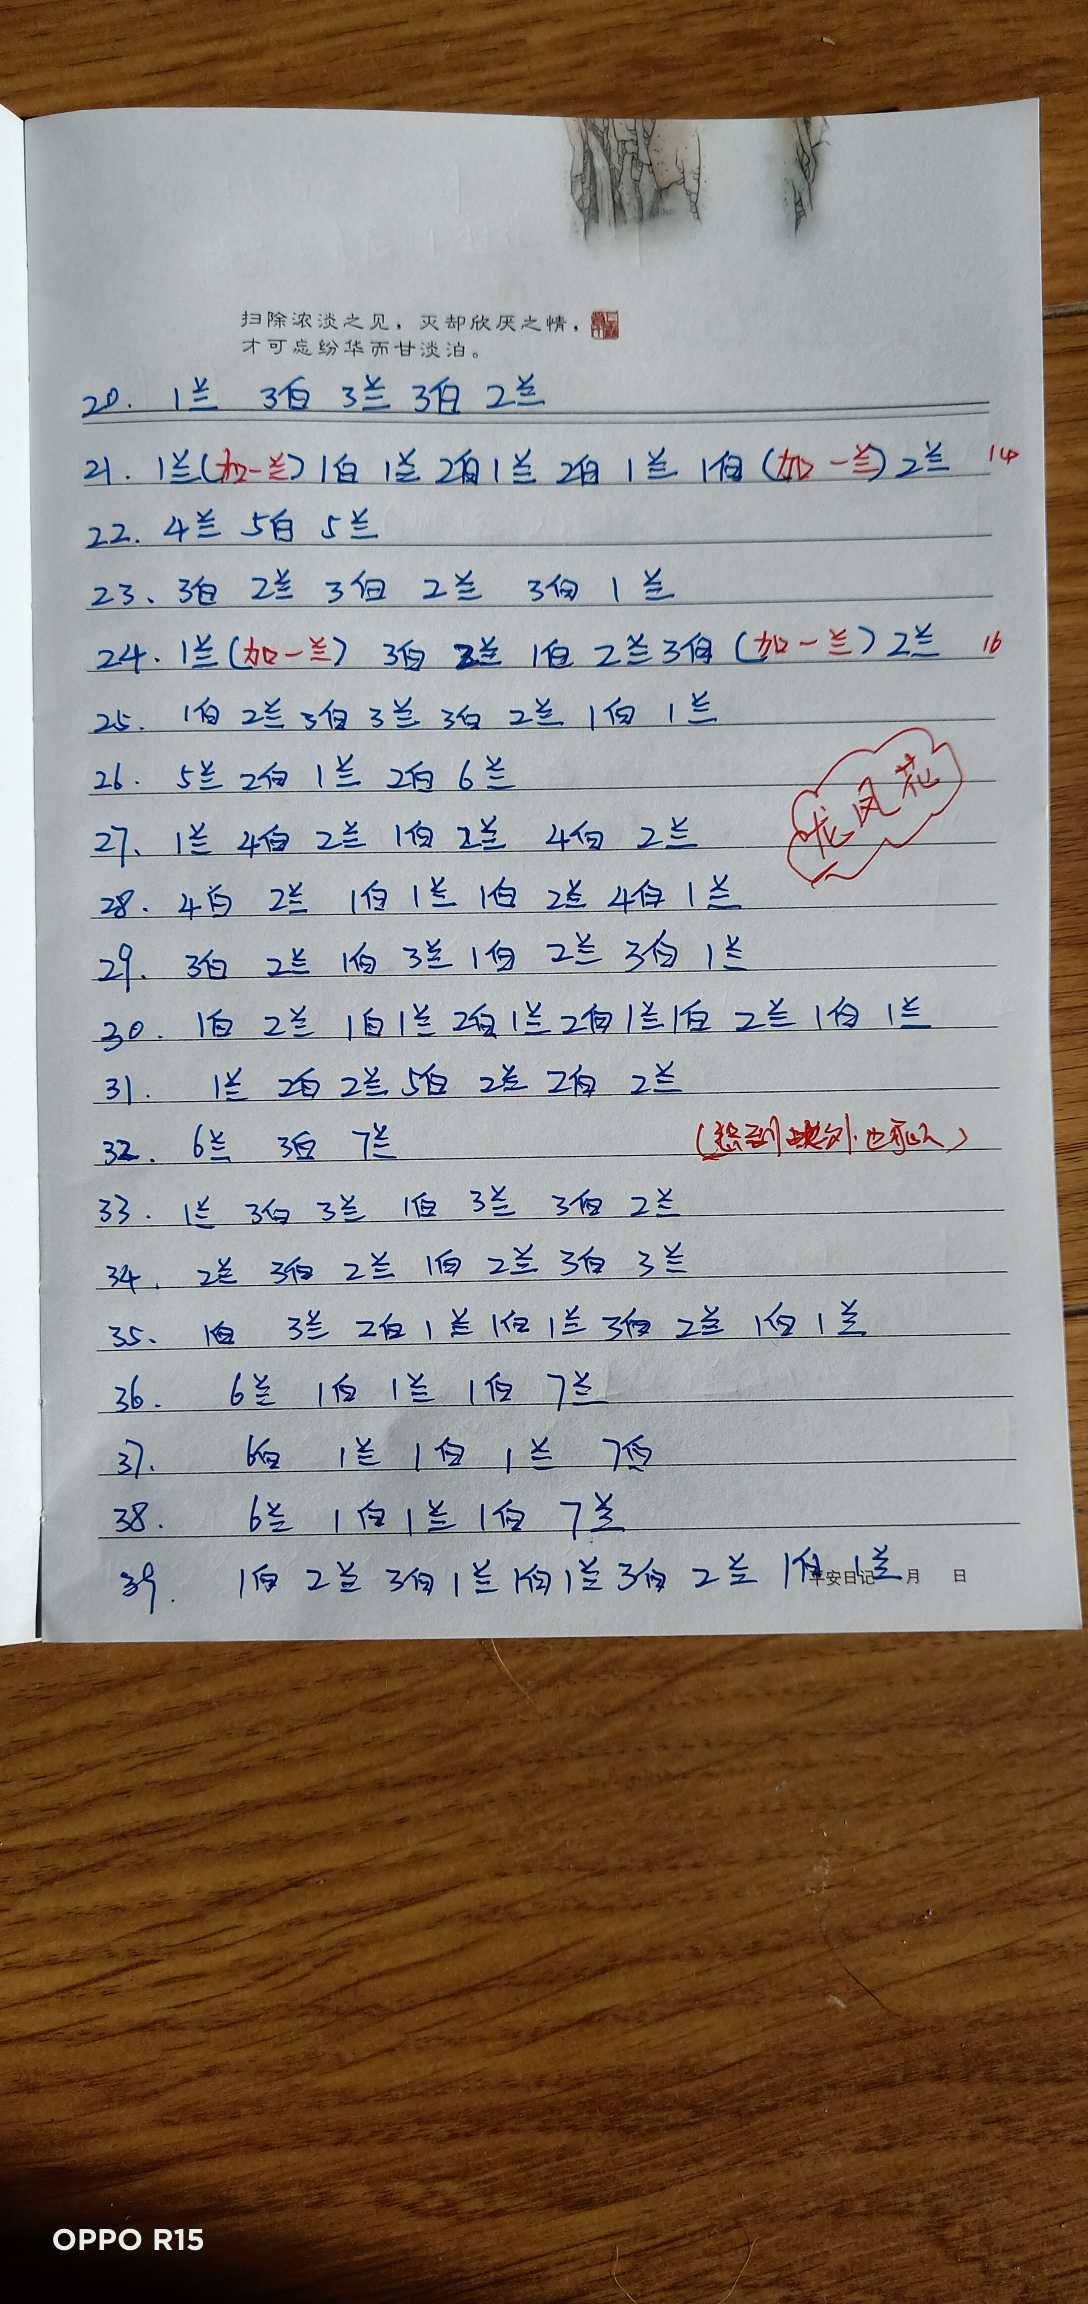 扫除浓淡之见，灭却欣厌之情，
才可忘纷华而甘淡泊。
20. 1兰 3白 3兰 3白 2兰
21. 1兰(加一兰) 1白 1兰 2白 1兰 2白 1兰 1白 (加一兰) 2兰 14
22. 4兰 5白 5兰
23. 3白 2兰 3白 2兰 3白 1兰
24. 1兰(加一兰) 3白 2兰 1白 2兰 3白 (加一兰) 2兰 16
25. 1白 2兰 3白 3兰 3白 2兰 1白 1兰
26. 5兰 2白 1兰 2白 6兰
龙凤花
27. 1兰 4白 2兰 1白 2兰 4白 2兰
28. 4白 2兰 1白 1兰 1白 2兰 4白 1兰
29. 3白 2兰 1白 3兰 1白 2兰 3白 1兰
30. 1白 2兰 1白 1兰 2白 1兰 2白 1兰 1白 2兰 1白 1兰
31. 1兰 2白 2兰 5白 2兰 2白 2兰
32. 6兰 3白 7兰
33. 1兰 3白 3兰 1白 3兰 3白 2兰
34. 2兰 3白 2兰 1白 2兰 3白 3兰
35. 1白 3兰 2白 1兰 1白 1兰 3白 2兰 1白 1兰
36. 6兰 1白 1兰 1白 7兰
37. 6白 1兰 1白 1兰 7白
38. 6兰 1白 1兰 1白 7兰
39. 1白 2兰 3白 1兰 1白 1兰 3白 2兰 1白 1兰
平安日记 月 日
OPPO R15